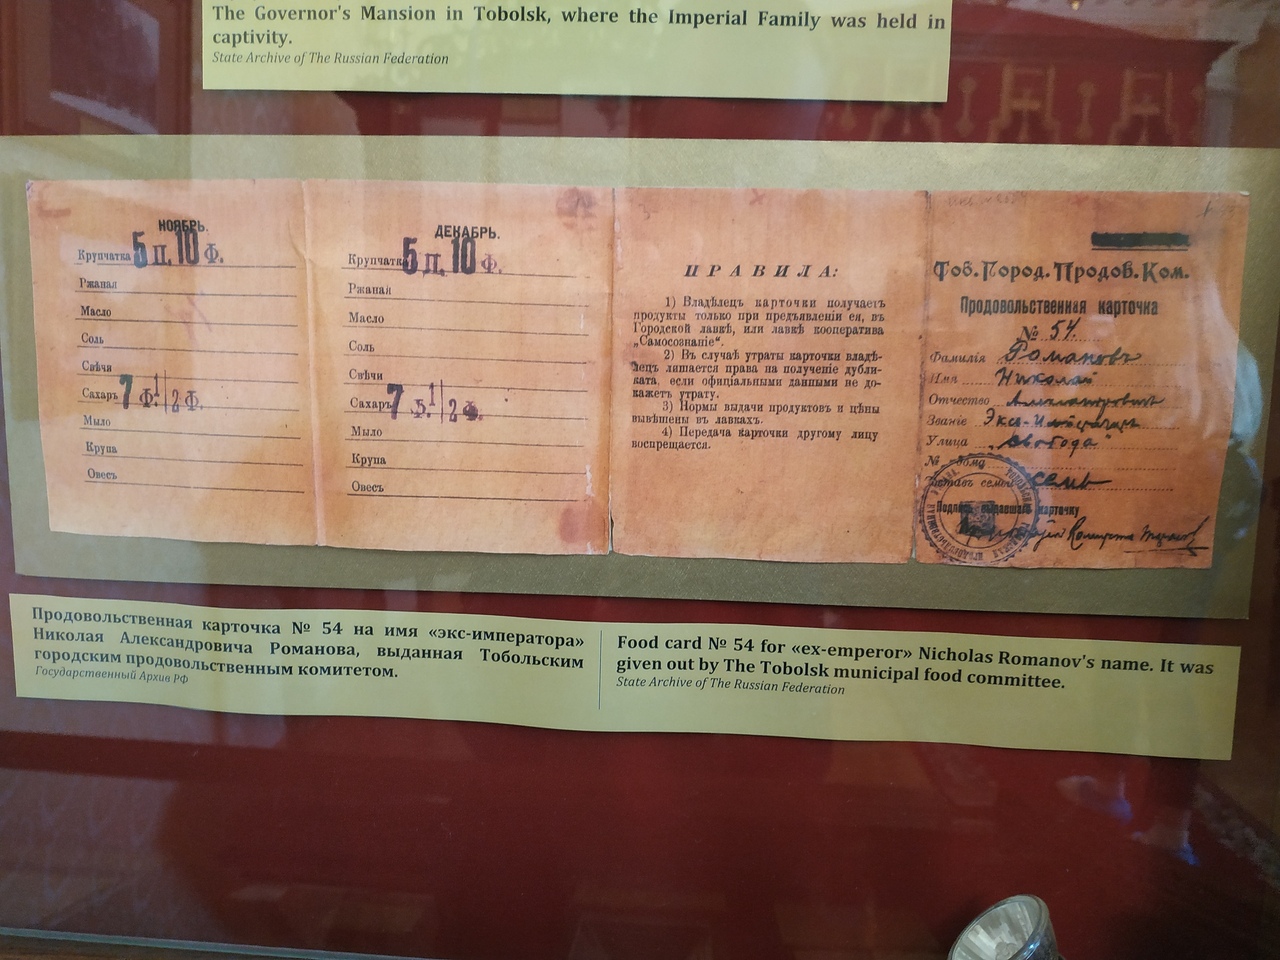 The Governor's Mansion in Tobolsk, where the Imperial Family was held in
captivity.
State Archive of The Russian Federation
НОЯБРЬ.
Крупчатка 5 п. 10 Ф.
Ржаная
Масло
Соль
Свѣчи
Сахаръ 7 Ф. 1/2 Ф.
Мыло
Крупа
Овесъ
ДЕКАБРЬ.
Крупчатка 5 п. 10 Ф.
Ржаная
Масло
Соль
Свѣчи
Сахаръ 7 Ф. 1/2 Ф.
Мыло
Крупа
Овесъ
ПРАВИЛА:
1) Владѣлецъ карточки получаетъ
продукты только при предъявленіи ея, въ
Городской лавкѣ, или лавкѣ кооператива
„Самосознаніе“.
2) Въ случаѣ утраты карточки владѣ-
лецъ лишается права на полученіе дубли-
ката, если офиціальными данными не до-
кажетъ утрату.
3) Нормы выдачи продуктовъ и цѣны
вывѣшены въ лавкахъ.
4) Передача карточки другому лицу
воспрещается.
Тоб. Город. Продов. Ком.
Продовольственная карточка
№ 54.
Фамилія Романовъ
Имя Николай
Отчество Александровичъ
Званіе Экс-Императоръ
Улица „Свобода“
№ дома
Составъ семьи семь
Подпись выдавшаго карточку
Продовольственная карточка № 54 на имя «экс-императора»
Николая Александровича Романова, выданная Тобольским
городским продовольственным комитетом.
Государственный Архив РФ
Food card № 54 for «ex-emperor» Nicholas Romanov's name. It was
given out by The Tobolsk municipal food committee.
State Archive of The Russian Federation